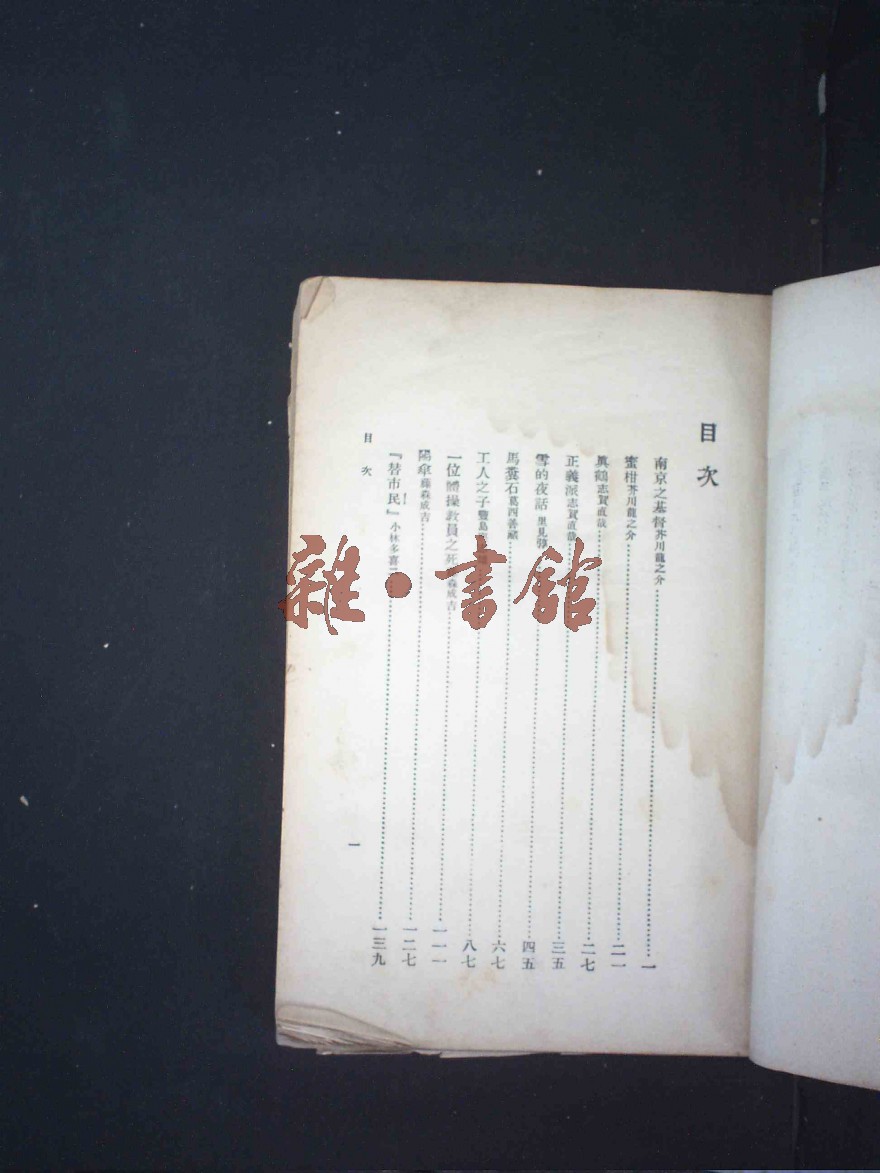 目次
南京之基督 芥川龍之介 一
蜜柑 芥川龍之介 二一
眞鶴 志賀直哉 二七
正義派 志賀直哉 三五
雪的夜話 里見弴 四五
馬糞石 葛西善藏 六七
工人之子 豐島 八七
一位體操敎員之死 森成吉 一一一
陽傘 藤森成吉 一二七
『替市民』 小林多喜 一三九
目次
一
雜·書館